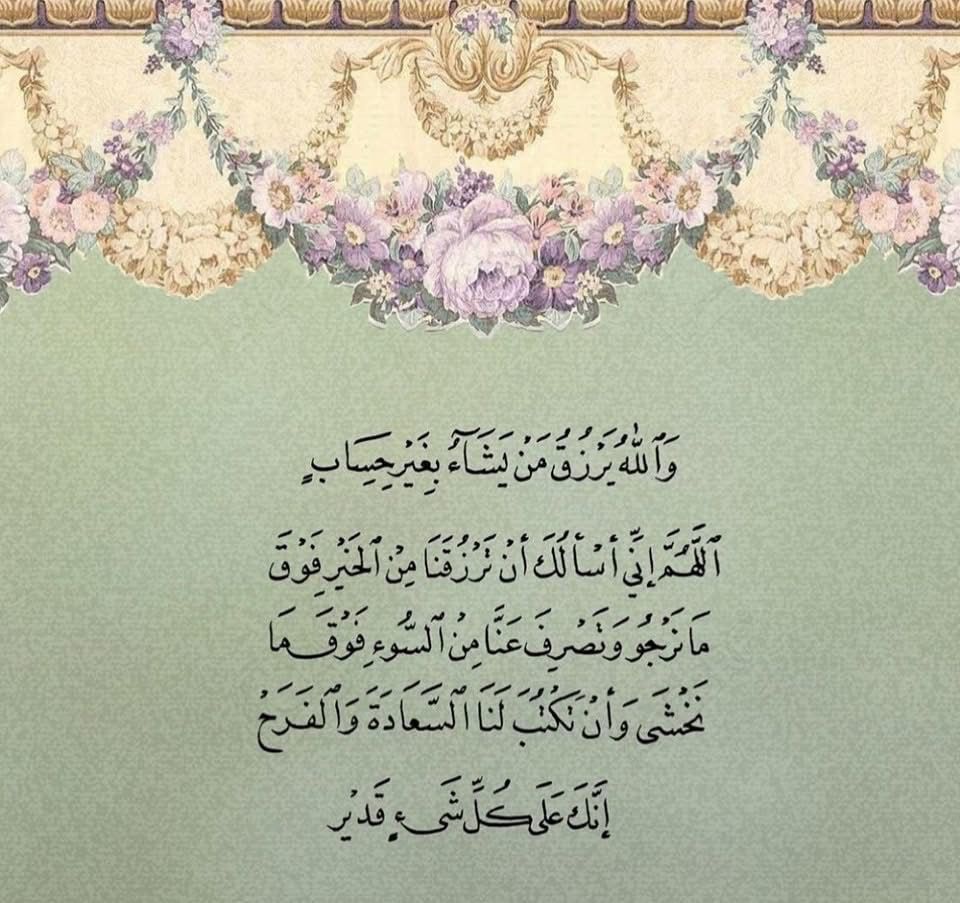 وَٱللَّهُ يَرْزُقُ مَن يَشَآءُ بِغَيْرِ حِسَابٍ
ٱللَّهُمَّ إِنِّي أَسْأَلُكَ أَنْ تَرْزُقَنَا مِنْ ٱلْخَيْرِ فَوْقَ
مَا نَرْجُو وَتَصْرِفَ عَنَّا مِنْ ٱلسُّوءِ فَوْقَ مَا
نَخْشَى وَأَنْ تَكْتُبَ لَنَا ٱلسَّعَادَةَ وَٱلْفَرَحْ
إِنَّكَ عَلَى كُلِّ شَىءٍ قَدْير